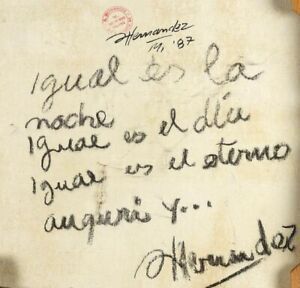 Hernandez
M, '87
igual es la
noche
igual es el día
igual es el eterno
auguri y...
Hernandez